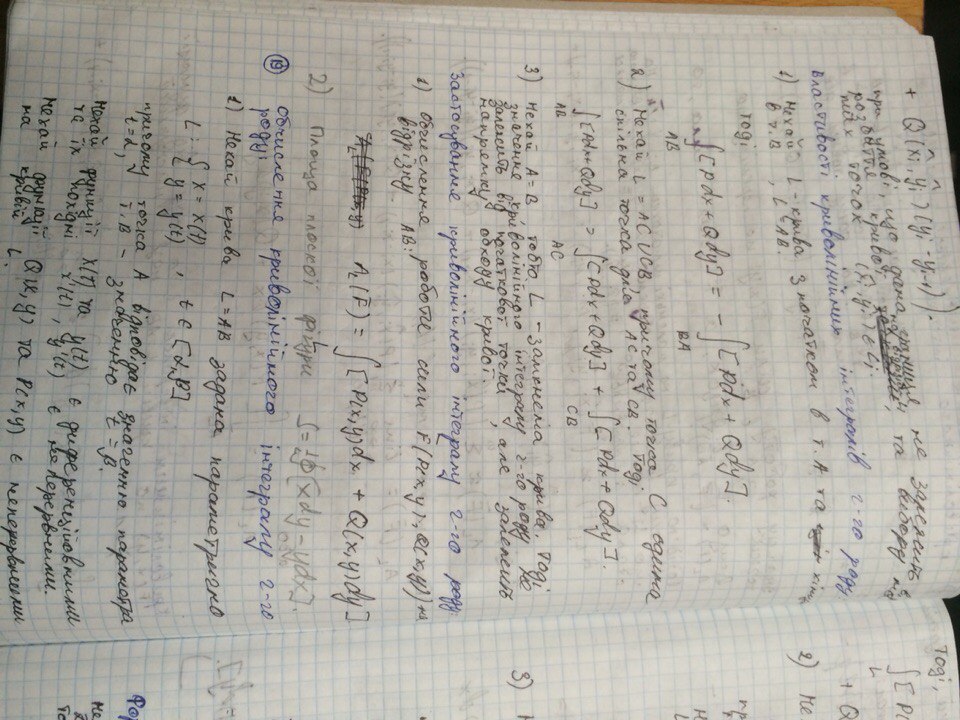 + Q(x̂i, ŷi)(yi - yi-1)).
при умові, що дана границя не залежить від
розбиття кривої, та вибору
точок (x̂i, ŷi) ∈ Li.
Властивості криволінійних інтегралів 2-го роду
1) Нехай L - крива з початком в т. A та кінцем
в т. B, L = AB.
Тоді
∫AB [Pdx + Qdy] = - ∫BA [Pdx + Qdy].
2) Нехай L = AC ∪ CB, причому точка C єдина
спільна точка для AC та CB. Тоді
∫AB [Pdx + Qdy] = ∫AC [Pdx + Qdy] + ∫CB [Pdx + Qdy].
3) Нехай A = B, тобто L - замкнена крива. Тоді
значення криволінійного інтегралу 2-го роду не
залежить від початкової точки, але залежить
напрямку обходу кривої.
Застосування криволінійного інтегралу 2-го роду
1) Обчислення роботи сили F̄(P(x,y), Q(x,y)) на
відрізку AB:
AL(F̄) = ∫L [P(x,y)dx + Q(x,y)dy]
2) Площа плоскої фігури S = ½∮[xdy - ydx].
19 Обчислення криволінійного інтегралу 2-го
роду:
1) Нехай крива L = AB задана параметрично
L: { x = x(t)
y = y(t) , t ∈ [α, β]
причому точка A відповідає значенню параметра
t = α, т. B - значенню t = β.
Нехай функції x(t) та y(t) є диференційовними
та їх похідні x'(t), y'(t) є неперервними.
Нехай функції Q(x, y) та P(x, y) є неперервними
на кривій L.
Тоді,
∫L [P
+ Q
2) Не
3)